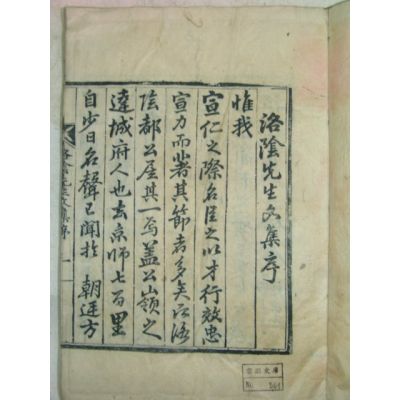 洛陰先生文集序
惟我
宣仁之際名臣之以才行效忠
宣力而著其節者多矣而洛
陰都公居其一焉盖公嶺之
達城府人也去京師七百里
自少日名聲已聞於 朝廷方
洛陰先生文集序 一
No. 561